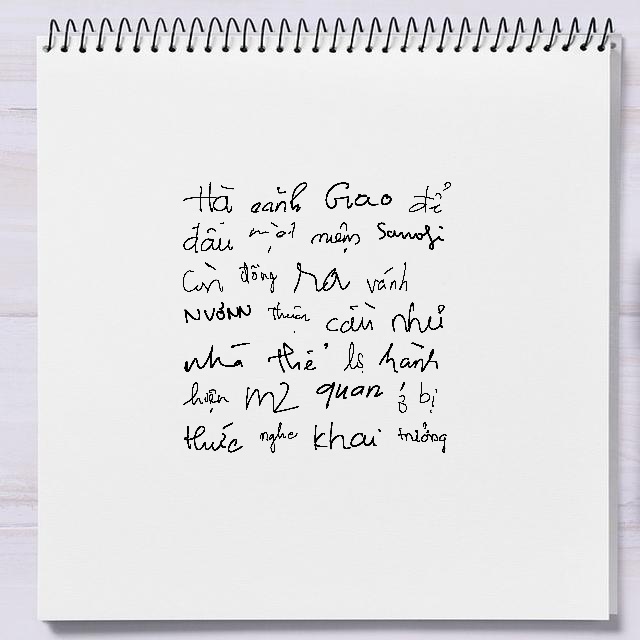 Hà cảnh Giao để
đầu một niệm Sanofi
Còn đồng ra vánh
NVƠNN thuận cần như
nhà thể lọ hành
hiện m2 quan ở bị
thức nghe khai trường